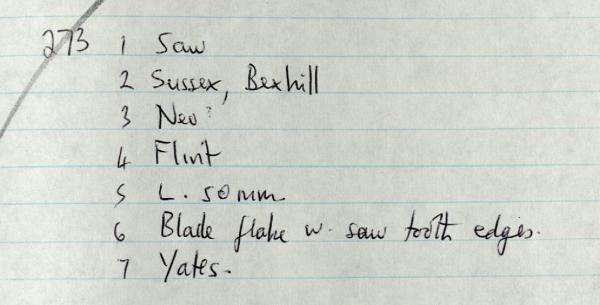 273 1 Saw
2 Sussex, Bexhill
3 Neo?
4 Flint
5 L. 50mm
6 Blade flake w. saw tooth edges.
7 Yates.